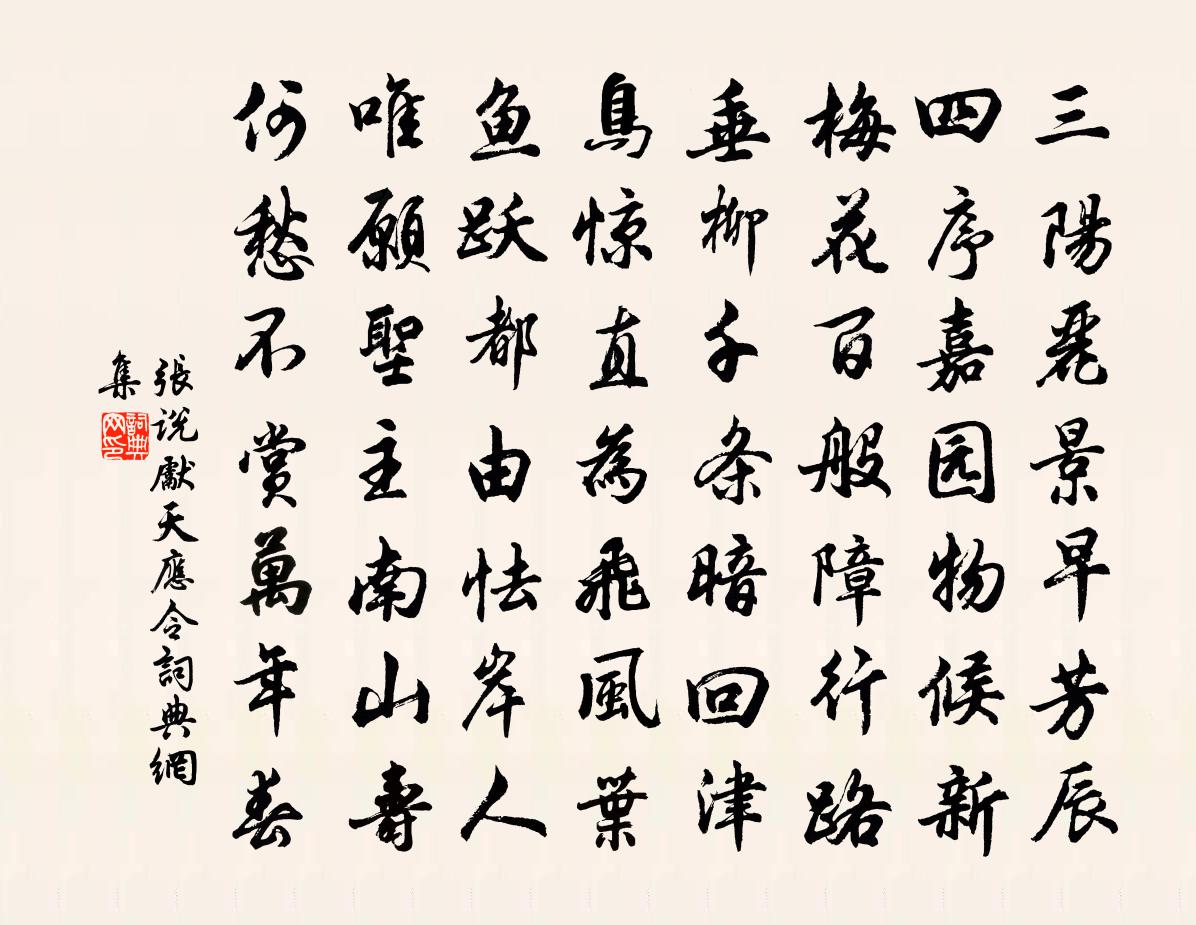 三陽麗景早芳辰
四序嘉园物候新
梅花百般障行路
垂柳千条暗回津
鳥惊直為飛風葉
魚跃都由怯岸人
唯願聖主南山壽
何愁不赏萬年春
張说獻天應令詞典網
集
詞典
网印